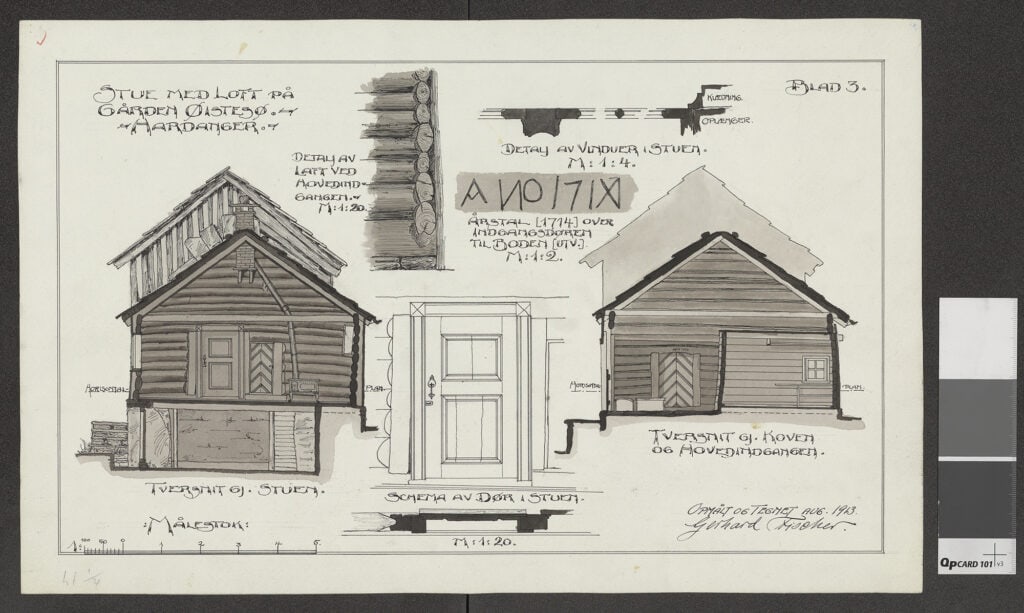 STUE MED LOFT PÅ
GÅRDEN ØISTESØ.
HARDANGER.
BLAD 3.
DETALJ AV
LAFT VED
HOVEDIND-
GANGEN.
M:1:20.
KLÆDNING.
OPLÆNGER.
DETALJ AV VINDUER I STUEN.
M:1:4.
ANO 171X
ÅRSTAL [1714] OVER
INDGANGSDØREN
TIL BODEN [UTV.].
M:1:2.
TVERSNIT GJ. STUEN.
SCHEMA AV DØR I STUEN.
M:1:20.
TVERSNIT GJ. KOVEN
OG HOVEDINDGANGEN.
:MÅLESTOK:
1 2 3 4 5
OPMÅLT OG TEGNET AUG. 1913.
Gerhard Fischer.
QPCARD 101 v3